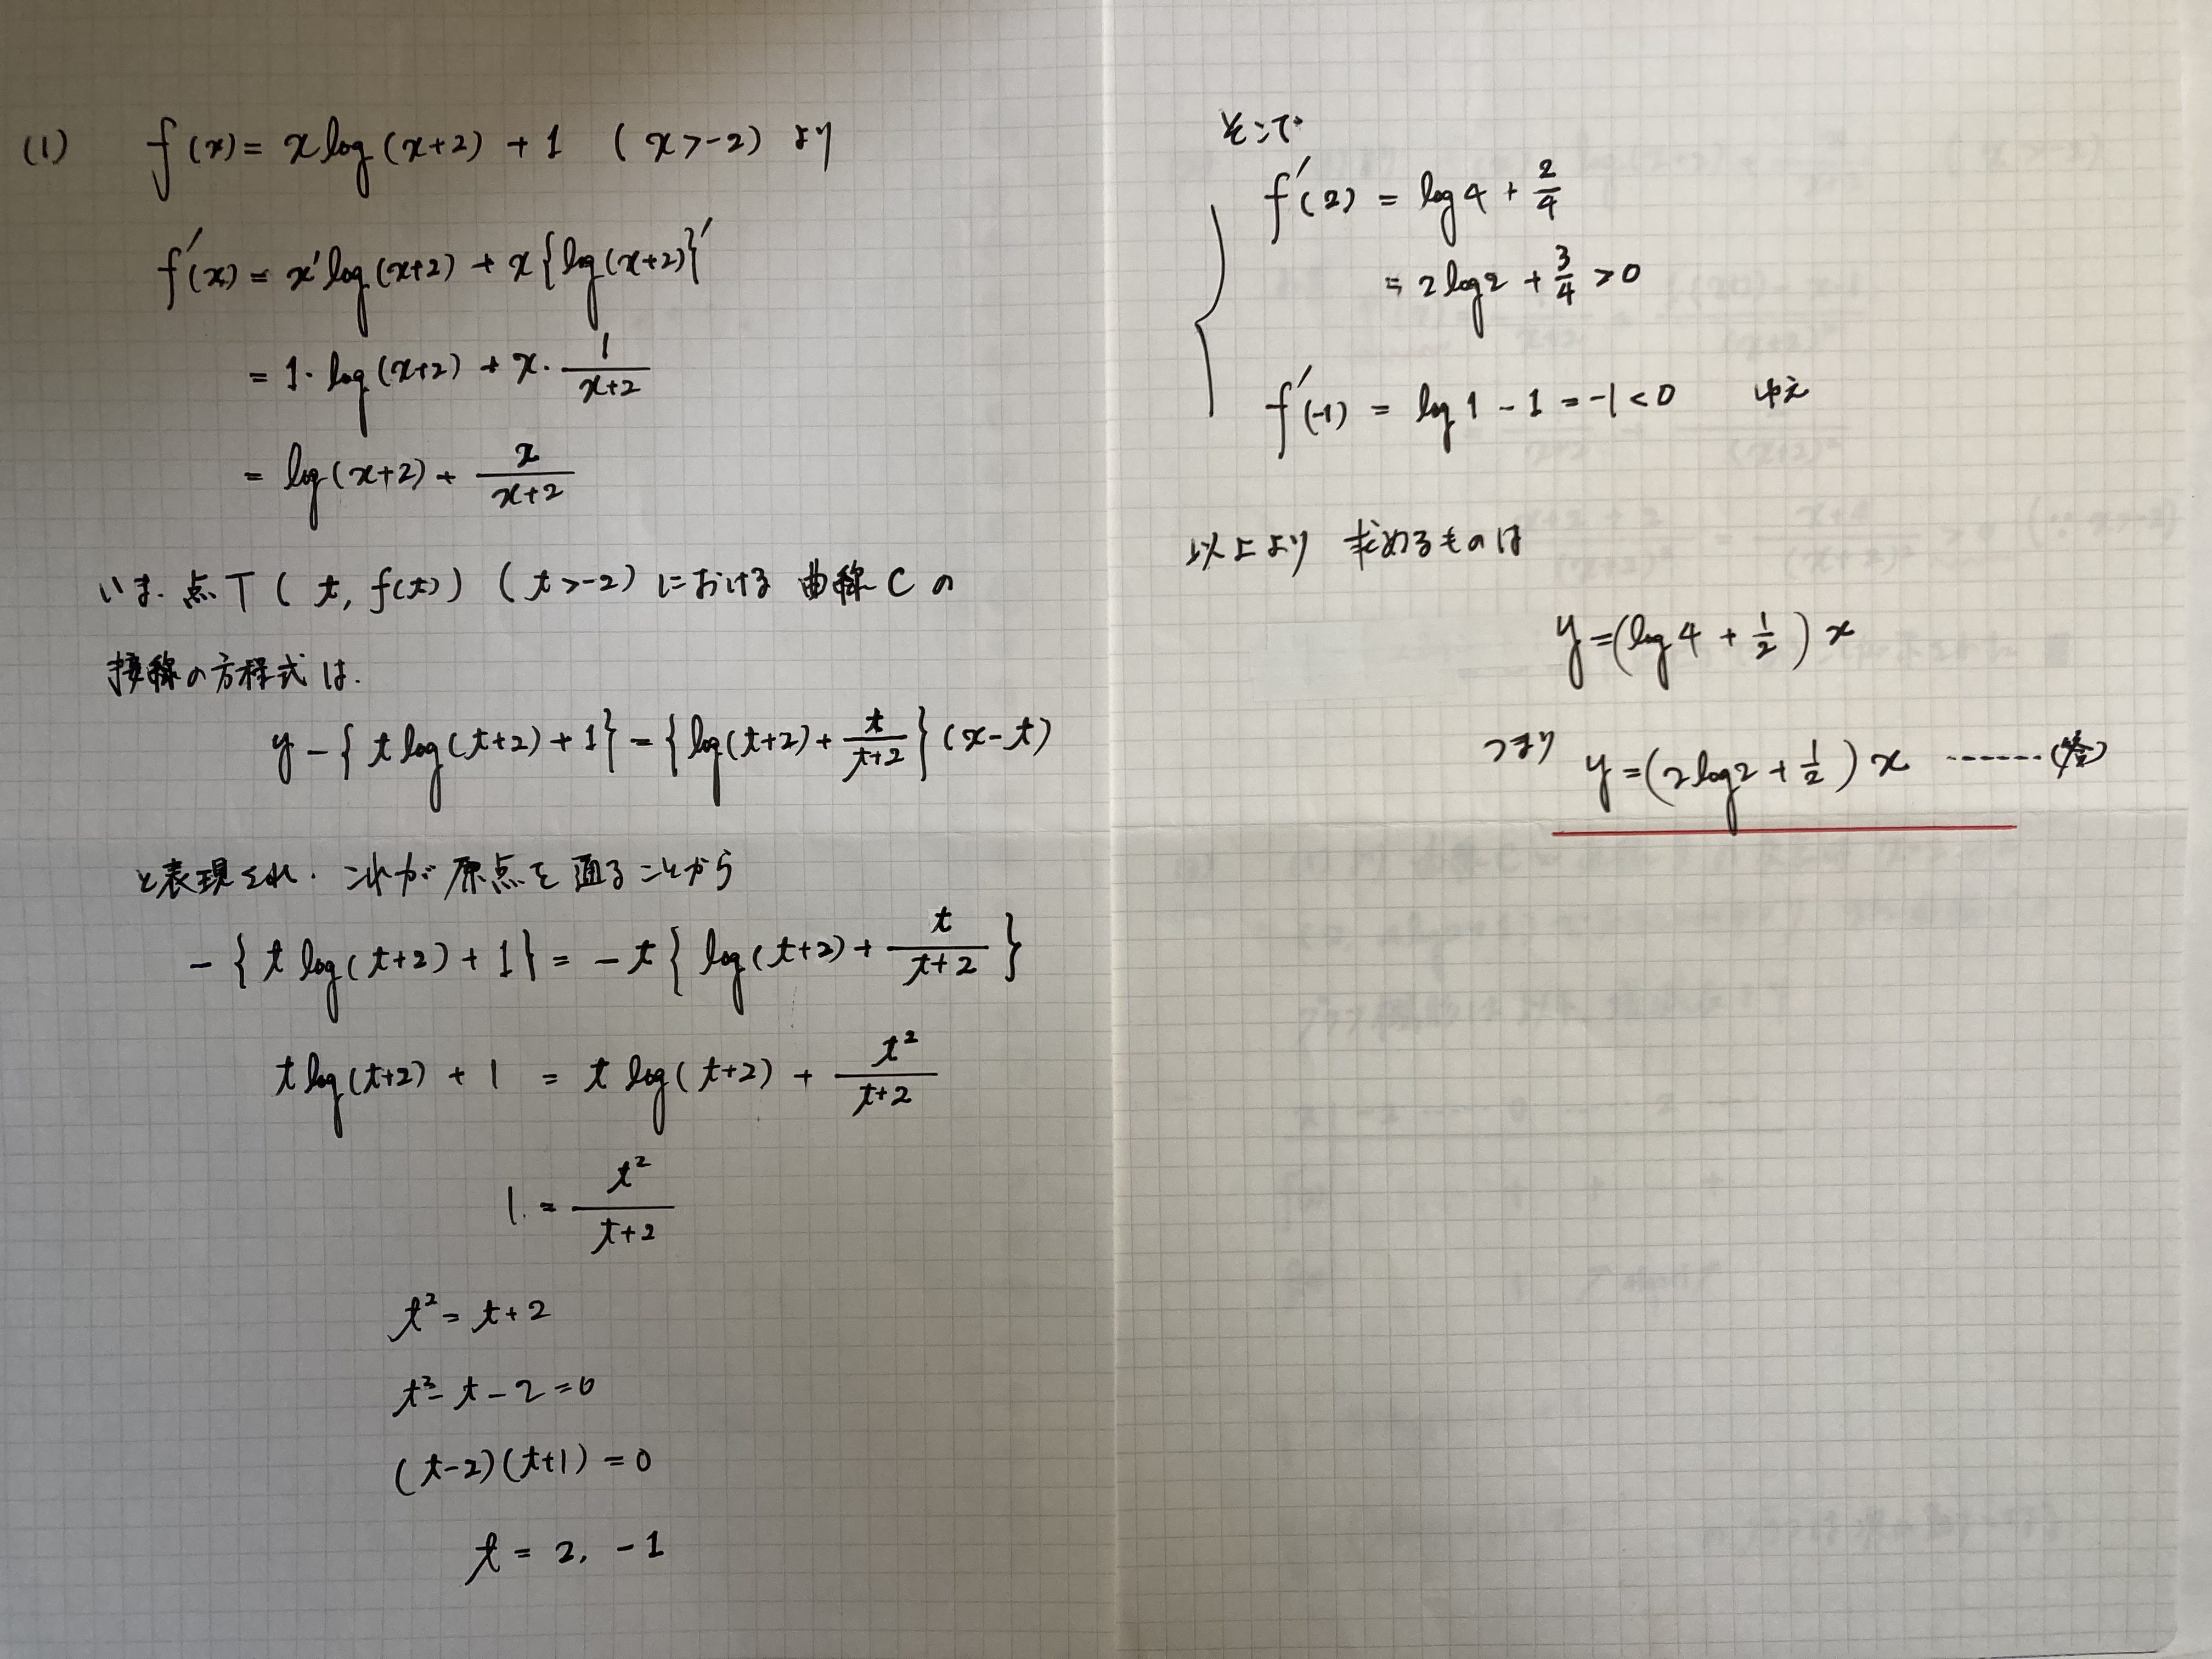 (1) f(x) = x log(x+2) + 1 (x>-2) より
f'(x) = x' log(x+2) + x{log(x+2)}'
= 1・log(x+2) + x・1/(x+2)
= log(x+2) + x/(x+2)
いま、点T(t, f(t)) (t>-2)における 曲線Cの
接線の方程式は、
y-{t log(t+2)+1}={log(t+2)+t/(t+2)}(x-t)
と表現され、これが原点を通ることから
-{t log(t+2)+1} = -t{log(t+2)+t/(t+2)}
t log(t+2) + 1 = t log(t+2) + t²/(t+2)
1 = t²/(t+2)
t² = t+2
t²-t-2=0
(t-2)(t+1)=0
t = 2, -1
そこで
f'(2) = log4 + 2/4
= 2log2 + 3/4 >0
f'(-1) = log1 - 1 = -1 < 0 ゆえ
以上より 求めるものは
y=(log4 + 1/2)x
つまり y=(2log2 + 1/2)x ……(答)